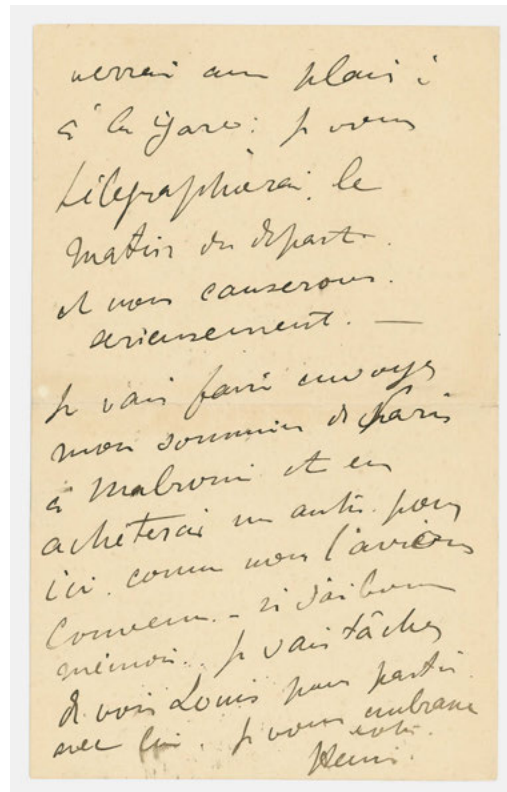 verrai avec plaisir
à la gare: je vous
télégraphierai le
matin du départ.
et nous causerons
sérieusement. —
Je vais faire envoyer
mon sommier de Paris
à Malromé et en
achèterai un autre pour
ici comme nous l'avions
convenu - si j'ai bonne
mémoire. Je vais tâcher
de voir Louis pour partir
avec lui. Je vous embrasse
votre
Henri.